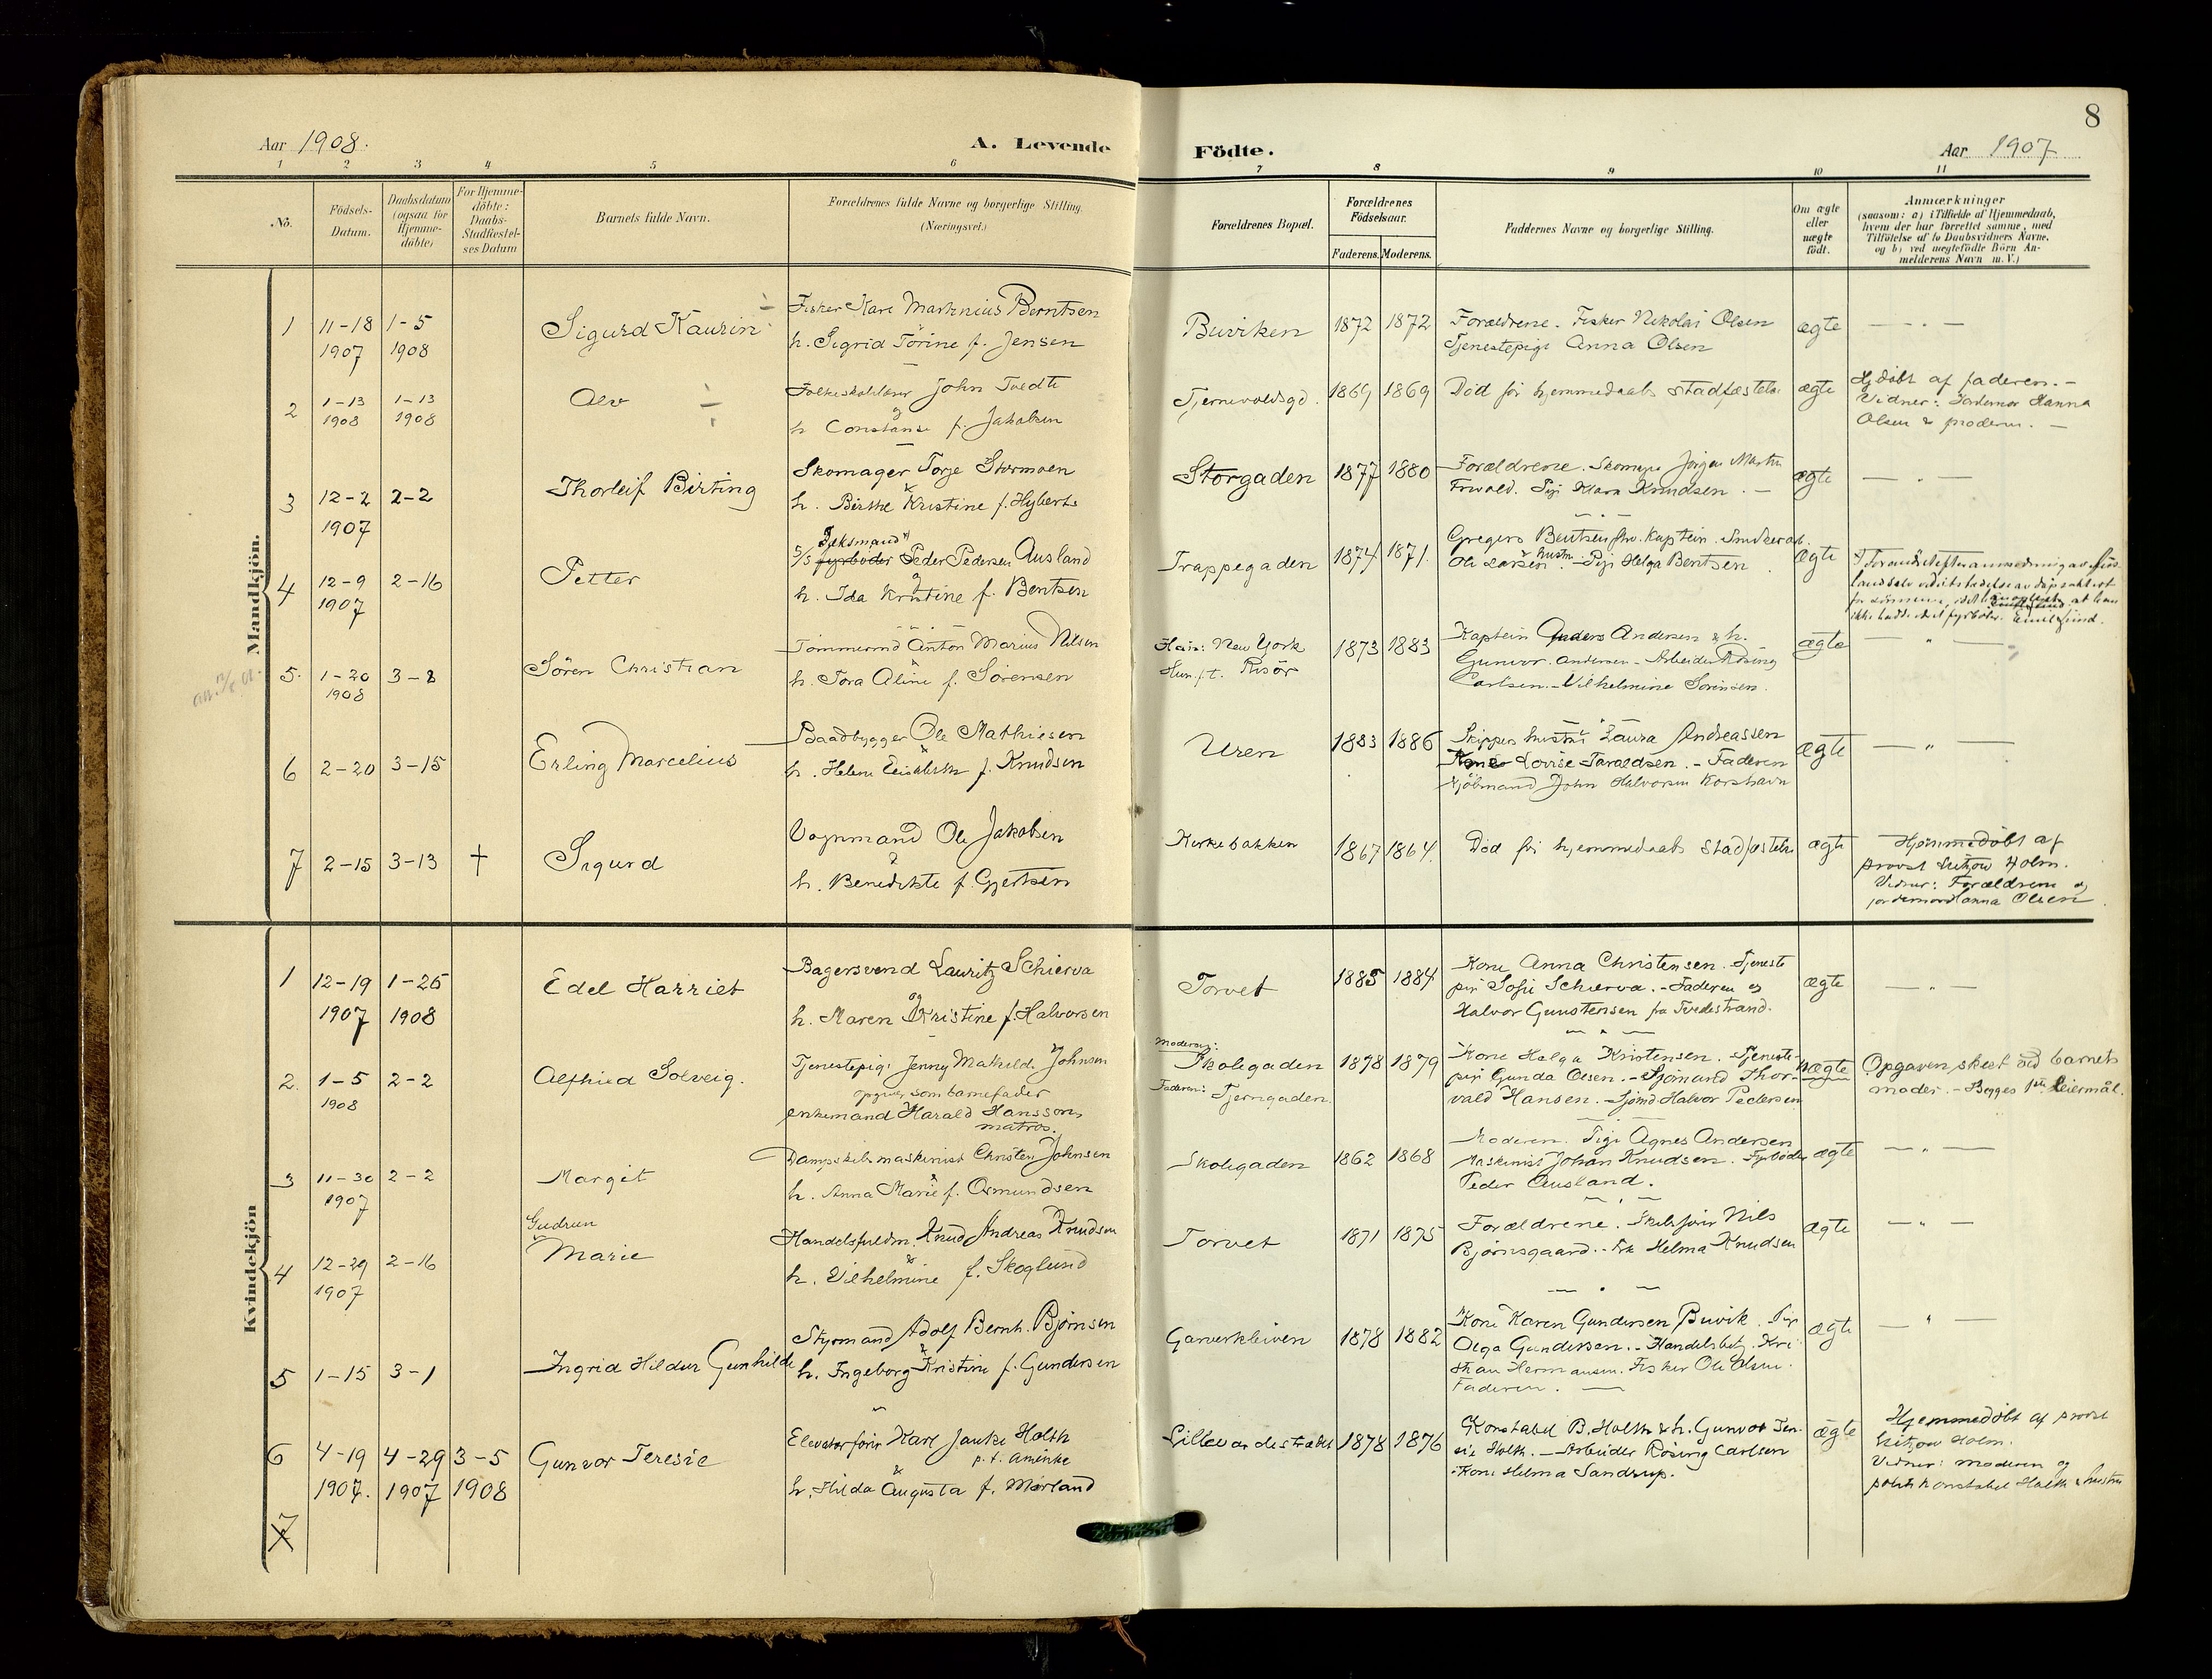 8
Aar 1908.
A. Levende
Födte.
Aar 1907
1 2 3 4 5 6 7 8 9 10 11
No.
Födsels-
Datum.
Daabsdatum
(ogsaa for
Hjemme-
döbte)
For Hjemme-
döbte:
Daabs-
Stadfæstel-
ses Datum
Barnets fulde Navn.
Forældrenes fulde Navne og borgerlige Stilling.
(Næringsvei.)
Forældrenes Bopæl.
Forældrenes
Födselsaar.
Faderens. Moderens.
Faddernes Navne og borgerlige Stilling.
Om ægte
eller
uægte
födt.
Anmærkninger
(saasom: a) i Tilfælde af Hjemmedaab,
hvem der har forrettet samme, med
Tilföielse af to Daabsvidners Navne,
og b) ved uægtefödte Börn An-
melderens Navn m. V.)
Mandkjön.
1
11-18
1907
1-5
1908
Sigurd Kaurin
Fisker Karl Martinius Berntsen
h. Sigrid Törine f. Jensen
Buviken
1872
1872
Forældrene. Fisker Nikolai Olsen
Tjenestepige Anna Olsen
ægte
2
1-13
1908
1-13
1908
Alv
John Tvedte
og
h Constanse f. Jakobsen
Tjernevoldsgd.
1869
1869
Död för hjemmedaabs stadfæstelse
ægte
Hjdöbt af faderen. -
Vidner: Jordemor Hanna
Olsen & moderen. -
3
12-2
1907
2-2
Thorleif Birting
Skomager Torje Stormoen
&
h. Birthe Kristine f. Hyberts
Storgaden
1877
1880
Forældrene. Jörgen Martin
Klara Knudsen. -
ægte
4
12-9
1907
2-16
Petter
Dæksmand
S/S fyrböder Peder Pedersen Ausland
og
h. Ida Kristine f. Bentsen
Trappegaden
1874
1871.
Gregers Bentsen frv. Kaptein
Ole Larsen & hustru. - Pige Helga Bentsen.
ægte
5.
1-20
1908
3-8
Sören Christian
Tömmermd Anton Marius Nilsen
&
h. Tora Aline f. Sörensen
Han: New York
Hun p.t. Risör
1873
1883
Kaptein Anders Andersen & h.
Gunvor Andersen - Arbeider Rösing
Carlsen. - Vilhelmine Sörensen.
ægte
6
2-20
3-15
Erling Marcelius
Baadbygger Ole Mathiesen
&
h. Helene f. Knudsen
Uren
1883
1886
Skippers hustru Laura Andreassen
Kone Lovise Taraldsen. - Faderen
Kjöbmand John Halvorsen Korshavn
ægte
7
2-15
3-13
†
Sigurd
Vognmand Ole Jakobsen
&
h. Benedikte f. Gjertsen
Kirkebakken
1867
1864.
Död för hjemmedaabs stadfæstelse
ægte
Hjemmedöbt af
provst Lützow Holm.
Vidner: Forældrene og
jordemor Hanna Olsen.
Kvindekjön
1
12-19
1907
1-26
1908
Edel Harriet
Bagersvend Lauritz Schierva
og
h. Maren Kristine f. Halvorsen
Torvet
1885
1884
Kone Anna Christensen. Tjeneste
pige Sofie Schierva. - Faderen og
Halvor Gunstensen fra Tvedestrand.
ægte
2.
1-5
1908
2-2
Alfhild Solveig.
Tjenestepige Jenny Mathilde Johnsen
opgiver som barnefader
enkemand Harald Hansson,
matros.
Moderens:
Skolegaden
Faderens: Tjerngaden.
1878
1879
Kone Helga Kristensen. Tjeneste-
pige Gunda Olsen. - Sjömand Thor-
vald Hansen. - Sjömd Halvor Pedersen
uægte
Opgaven skeet ved barnets
moder. - Begges 1ste Leiermål.
3
11-30
1907
2-2
Margit
Dampskibsmaskinist Christen Johnsen
&
h. Anna Marie f. Osmundsen
Skolegaden
1862
1868
Moderen. Pige Agnes Andersen
Maskinist Johan Knudsen. Fyrböder
Peder Ausland.
ægte
4
12-29
1907
2-16
Gudrun
Marie
Handelsfuldm. Knud Andreas Knudsen
&
h. Vilhelmine f. Skoglund
Torvet
1871
1875
Forældrene. Skibsförer Nils
Björnsgaard. - Frk Helma Knudsen
ægte
5
1-15
3-1
Ingrid Hildur Gunhilde
Styrmand Adolf Bernh. Björnsen
&
h. Ingeborg Kristine f. Gundersen
Garverkleiven
1878
1882
Kone Karen Gundersen Buvik. Pige
Olga Gundersen. - Handelsbetj. Kri-
stian Hermansen. Fisker Ole Olsen.
Faderen. -
ægte
6
4-19
1907.
4-29
1907
3-5
1908
Gunvor Teresie
Elevatorförer Karl Holth
&
h. Hilda Augusta f. Mörland
1878
1876
Konstabel B. Holth & h. Gunvor Tere-
sie Holth. - Arbeider Rösing Carlsen
Kone Helma Sandrup.
ægte
Hjemmedöbt af provst
Lützow Holm.
Vidner: Moderen og
politikonstabel Holth & hustru
7